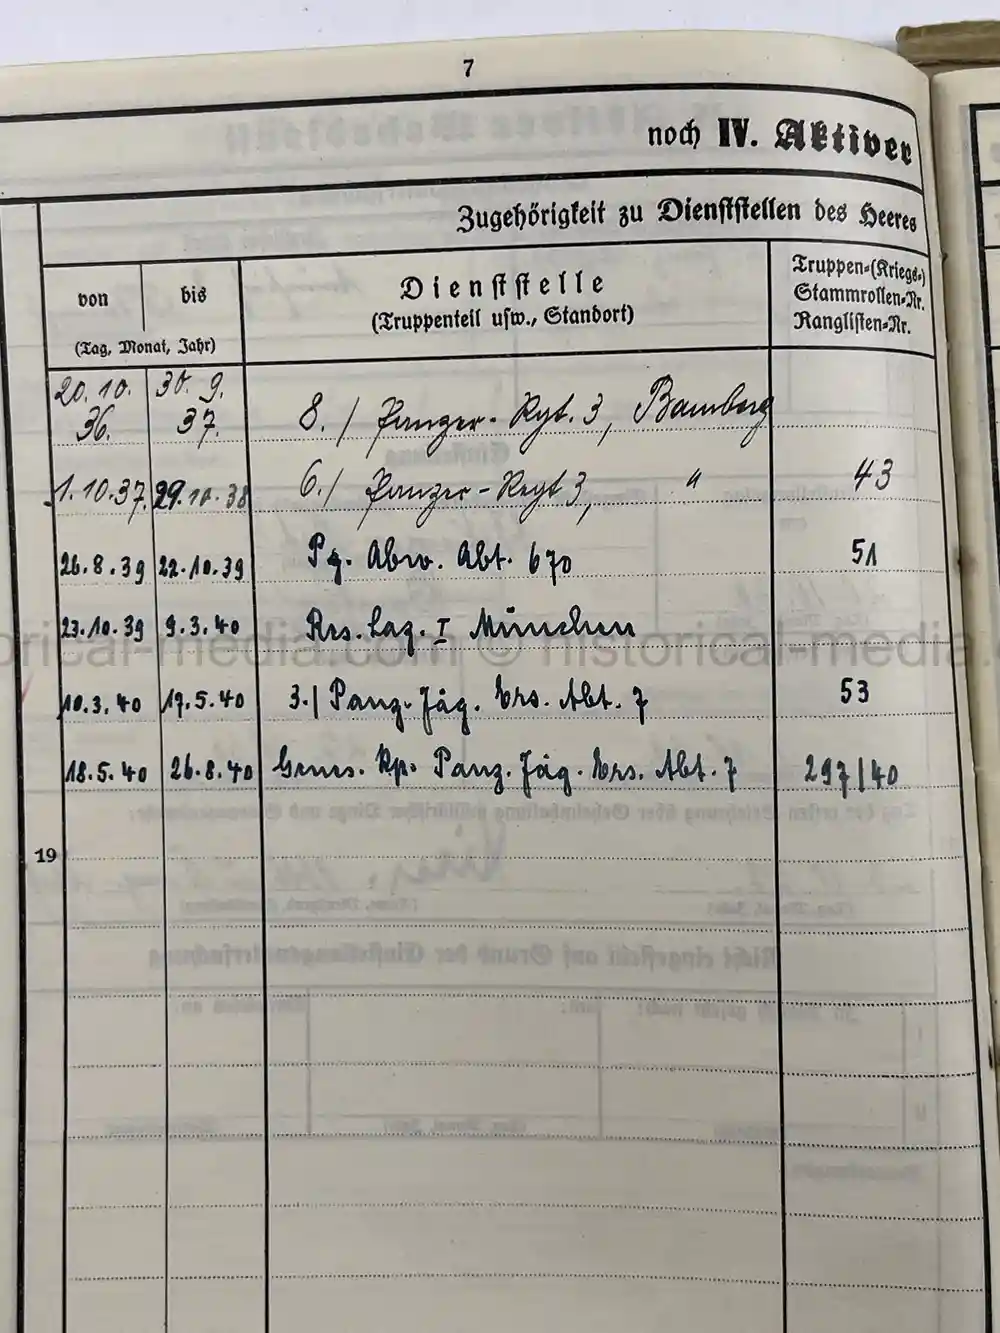 7
noch IV. Aktiver
Zugehörigkeit zu Dienststellen des Heeres
von
bis
(Tag, Monat, Jahr)
Dienststelle
(Truppenteil usw., Standort)
Truppen-(Kriegs-)
Stammrollen-Nr.
Ranglisten-Nr.
20.10. 36. 30. 9. 37. 8./ Panzer-Rgt. 3, Bamberg
1.10.37. 29.10.38 6./ Panzer-Regt 3, " 43
26.8.39 22.10.39 Pz. Abw. Abt. 670 51
23.10.39 9.3.40 Res. Laz. I München
10.3.40 17.5.40 3./ Panz. Jäg. Ers. Abt. 7 53
18.5.40 26.8.40 Genes. Kp. Panz. Jäg. Ers. Abt. 7 297/40
19
historical-media.com © historical-media.c